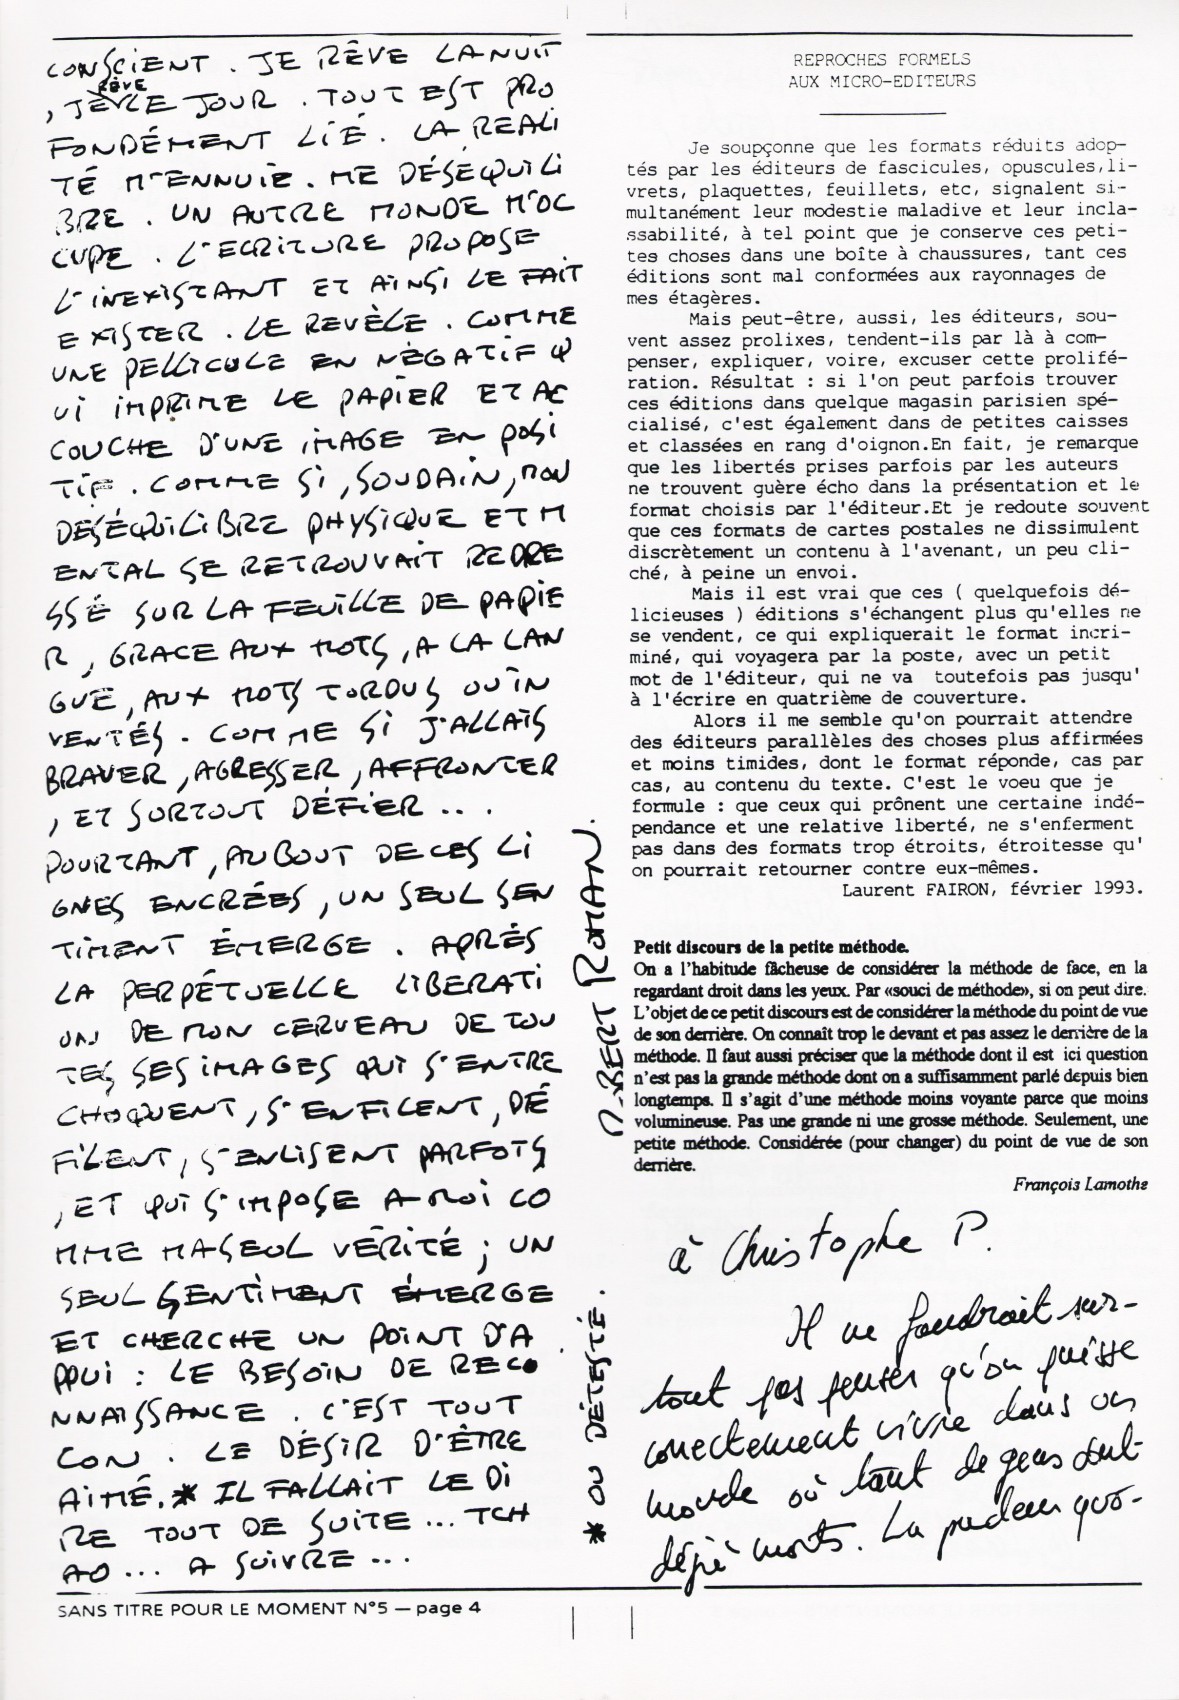 CONSCIENT . JE RÊVE LA NUIT
, JE RÊVE LE JOUR . TOUT EST PRO
FONDÉMENT LIÉ . LA REALI
TÉ M'ENNUIE . ME DÉSÉQUILI
BRE . UN AUTRE MONDE M'OC
CUPE . L'ECRITURE PROPOSE
L'INEXISTANT ET AINSI LE FAIT
EXISTER . LE REVÈLE . COMME
UNE PELLICULE EN NÉGATIF Q
UI IMPRIME LE PAPIER ET AC
COUCHE D'UNE IMAGE EN POSI
TIF . COMME SI , SOUDAIN , MON
DESÉQUILIBRE PHYSIQUE ET M
ENTAL SE RETROUVAIT REDRE
SSÉ SUR LA FEUILLE DE PAPIE
R , GRACE AUX MOTS , A LA LAN
GUE , AUX MOTS TORDUS OU IN
VENTÉS . COMME SI J'ALLAIS
BRAVER , AGRESSER , AFFRONTER
, ET SURTOUT DÉFIER ...
POURTANT , AU BOUT DE CES LI
GNES ENCRÉES , UN SEUL SEN
TIMENT ÉMERGE . APRÈS
LA PERPÉTUELLE LIBERATI
ON DE MON CERVEAU DE TOU
TES SES IMAGES QUI S'ENTRE
CHOQUENT , S'ENFILENT , DÉ
FILENT , S'ENLISENT PARFOIS
, ET QUI S'IMPOSE A MOI CO
MME MA SEUL VÉRITÉ ; UN
SEUL SENTIMENT ÉMERGE
ET CHERCHE UN POINT D'A
PPUI : LE BESOIN DE RECO
NNAISSANCE . C'EST TOUT
CON . LE DÉSIR D'ÊTRE
AIMÉ.* IL FALLAIT LE DI
RE TOUT DE SUITE ... TCH
AO ... A SUIVRE ...
* OU DÉTESTÉ .
ROMAN.
REPROCHES FORMELS
AUX MICRO-EDITEURS
Je soupçonne que les formats réduits adop-
tés par les éditeurs de fascicules, opuscules,li-
vrets, plaquettes, feuillets, etc, signalent si-
multanément leur modestie maladive et leur incla-
ssabilité, à tel point que je conserve ces peti-
tes choses dans une boîte à chaussures, tant ces
éditions sont mal conformées aux rayonnages de
mes étagères.
Mais peut-être, aussi, les éditeurs, sou-
vent assez prolixes, tendent-ils par là à com-
penser, expliquer, voire, excuser cette prolifé-
ration. Résultat : si l'on peut parfois trouver
ces éditions dans quelque magasin parisien spé-
cialisé, c'est également dans de petites caisses
et classées en rang d'oignon.En fait, je remarque
que les libertés prises parfois par les auteurs
ne trouvent guère écho dans la présentation et le
format choisis par l'éditeur.Et je redoute souvent
que ces formats de cartes postales ne dissimulent
discrètement un contenu à l'avenant, un peu cli-
ché, à peine un envoi.
Mais il est vrai que ces ( quelquefois dé-
licieuses ) éditions s'échangent plus qu'elles ne
se vendent, ce qui expliquerait le format incri-
miné, qui voyagera par la poste, avec un petit
mot de l'éditeur, qui ne va toutefois pas jusqu'
à l'écrire en quatrième de couverture.
Alors il me semble qu'on pourrait attendre
des éditeurs parallèles des choses plus affirmées
et moins timides, dont le format réponde, cas par
cas, au contenu du texte. C'est le voeu que je
formule : que ceux qui prônent une certaine indé-
pendance et une relative liberté, ne s'enferment
pas dans des formats trop étroits, étroitesse qu'
on pourrait retourner contre eux-mêmes.
Laurent FAIRON, février 1993.
Petit discours de la petite méthode.
On a l'habitude fâcheuse de considérer la méthode de face, en la
regardant droit dans les yeux. Par «souci de méthode», si on peut dire.
L'objet de ce petit discours est de considérer la méthode du point de vue
de son derrière. On connaît trop le devant et pas assez le derrière de la
méthode. Il faut aussi préciser que la méthode dont il est ici question
n'est pas la grande méthode dont on a suffisamment parlé depuis bien
longtemps. Il s'agit d'une méthode moins voyante parce que moins
volumineuse. Pas une grande ni une grosse méthode. Seulement, une
petite méthode. Considérée (pour changer) du point de vue de son
derrière.
François Lamothe
à Christophe P.
Il ne faudrait sur-
tout pas penser qu'on puisse
correctement vivre dans un
monde où tant de gens sont
déjà morts. La pudeur quo-
SANS TITRE POUR LE MOMENT N°5 — page 4